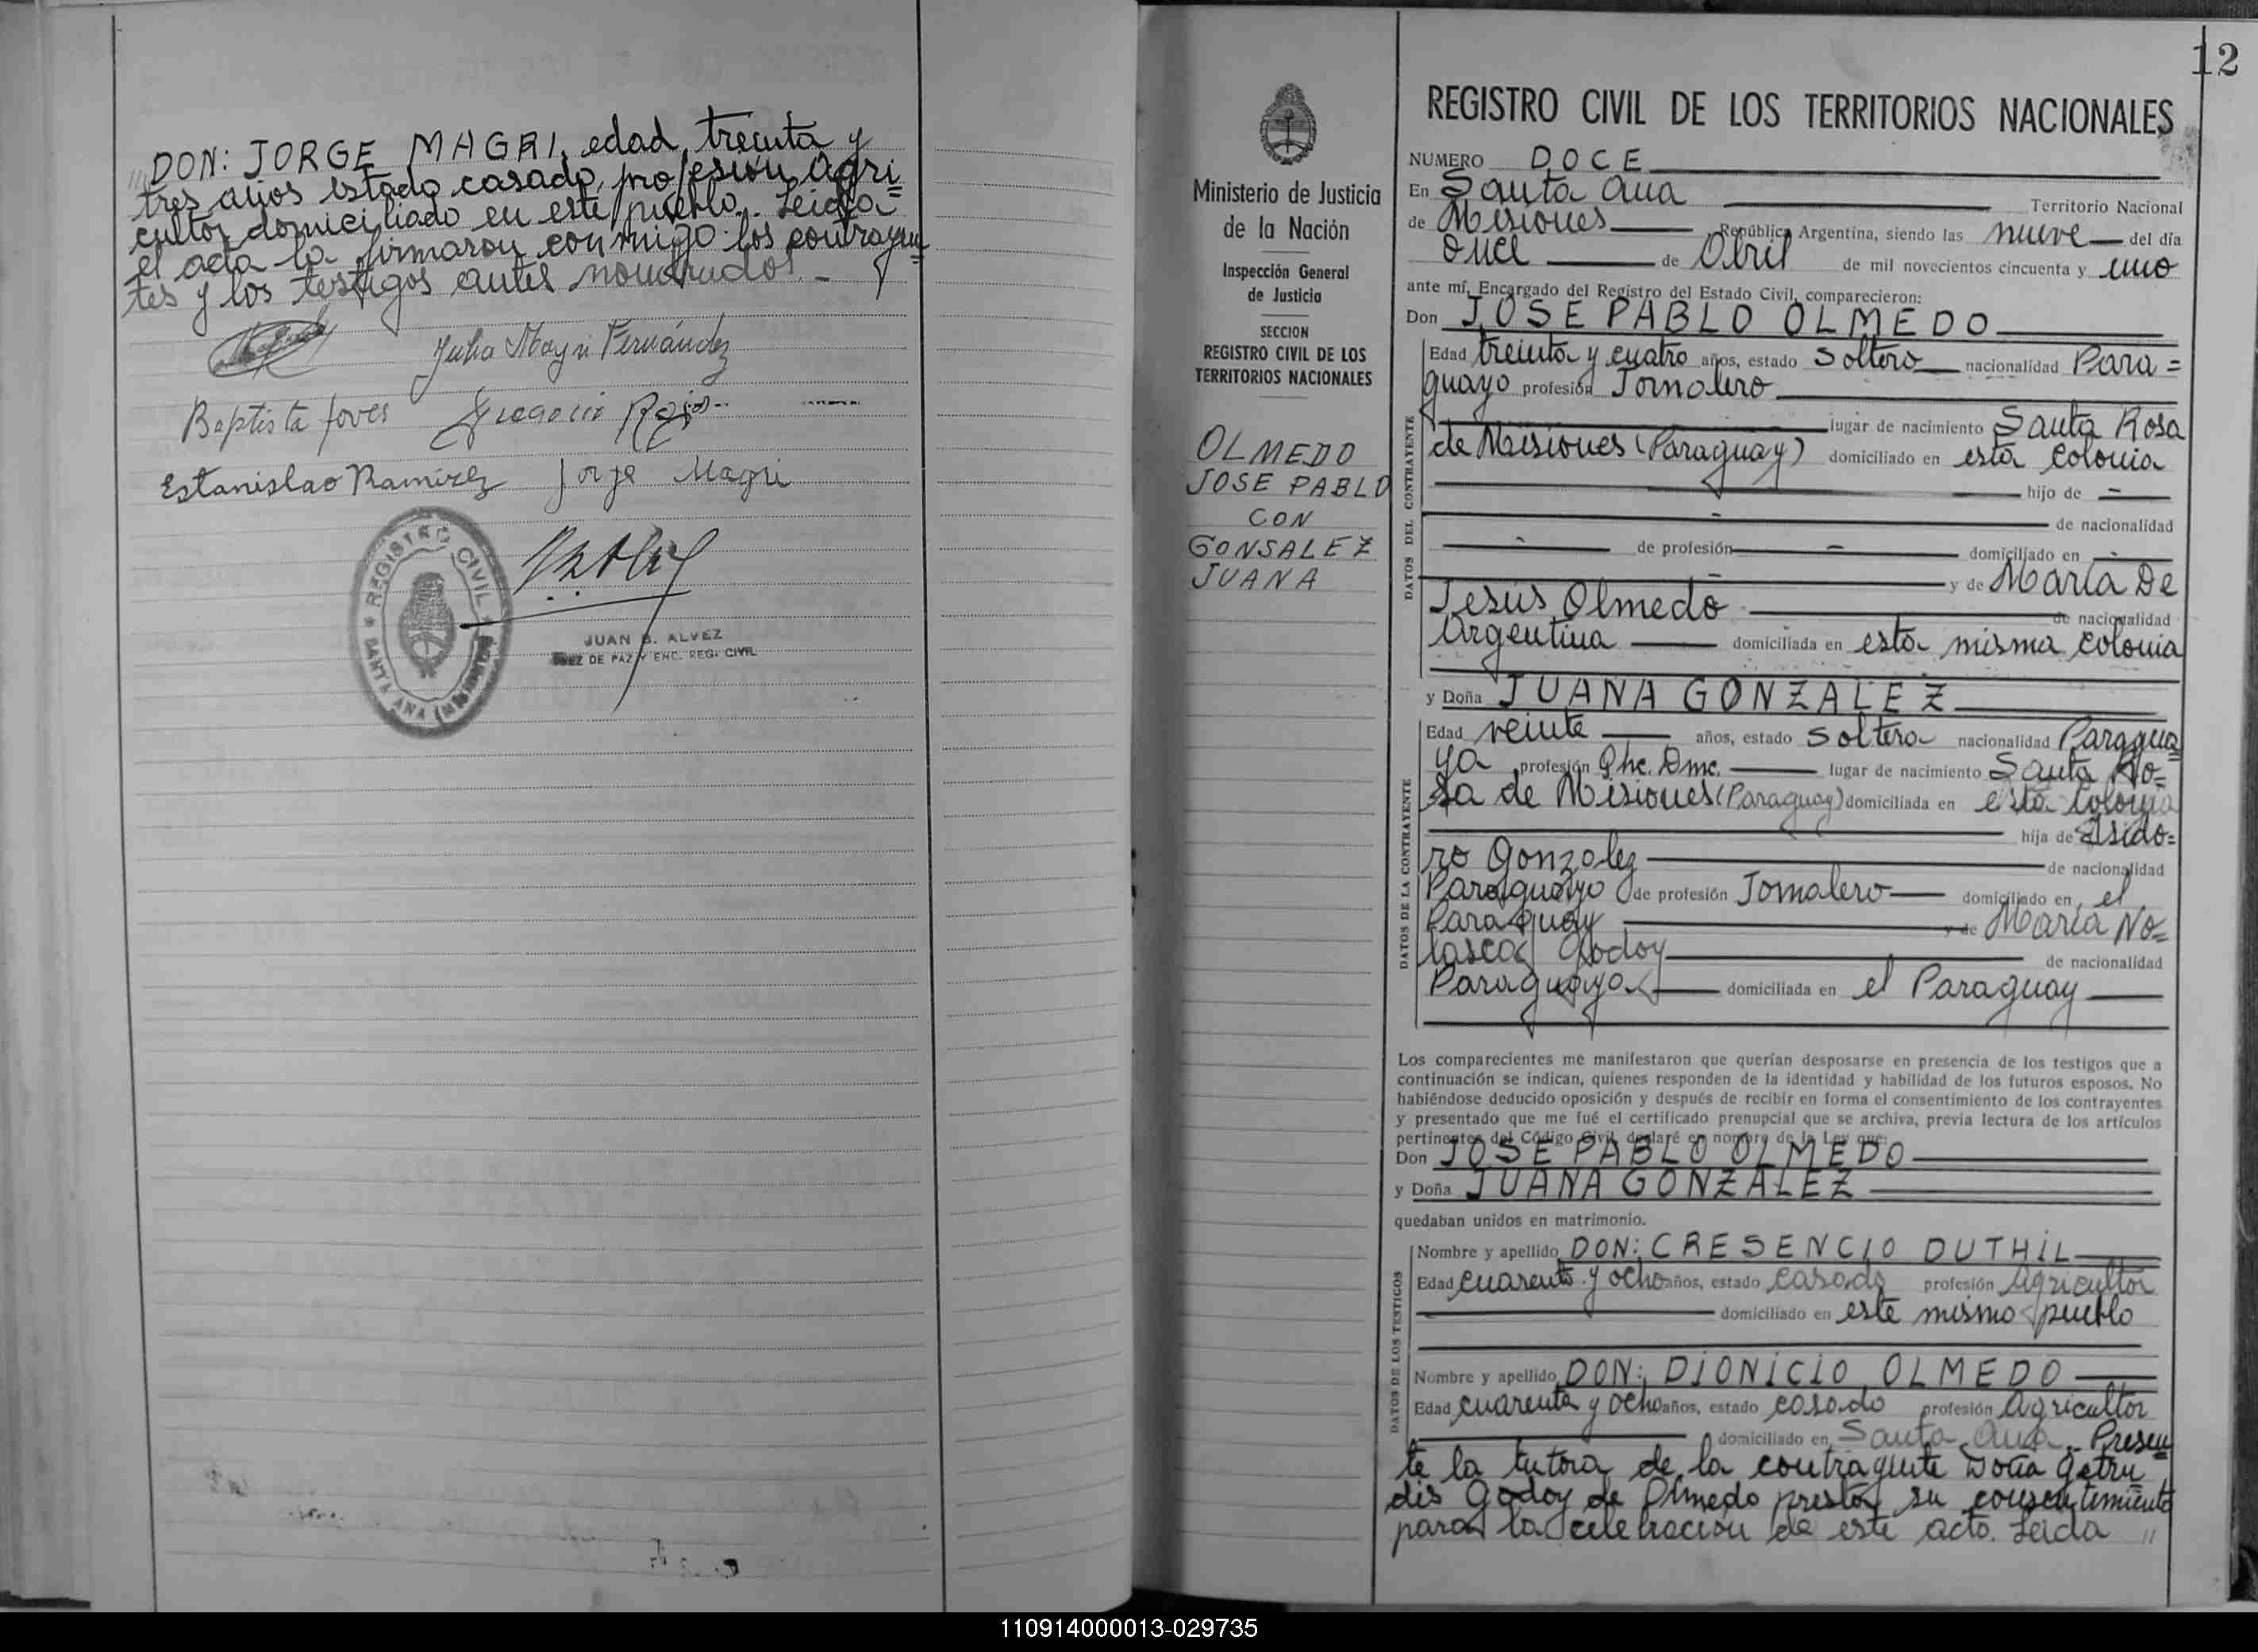 DON: JORGE MAGRI, edad, treinta y
tres años estado casado, profesión Agri=
cultor domiciliado en este pueblo. Leida
el acta la firmaron conmigo los contrayen=
tes y los testigos antes nombrados. -
Julia Mayri Fernández
Baptista foves Rojas
Estanislao Ramirez Jorge Magri
REGISTRO CIVIL
SANTA ANA
JUAN B. ALVEZ
JUEZ DE PAZ Y ENC. REG. CIVIL
12
Ministerio de Justicia
de la Nación
Inspección General
de Justicia
SECCION
REGISTRO CIVIL DE LOS
TERRITORIOS NACIONALES
OLMEDO
JOSE PABLO
CON
GONSALEZ
JUANA
REGISTRO CIVIL DE LOS TERRITORIOS NACIONALES
NUMERO DOCE
En Santa Ana Territorio Nacional
de Misiones, República Argentina, siendo las nueve del día
once de Abril de mil novecientos cincuenta y uno
ante mí, Encargado del Registro del Estado Civil, comparecieron:
Don JOSE PABLO OLMEDO
DATOS DEL CONTRAYENTE
Edad treinta y cuatro años, estado soltero nacionalidad Para=
guayo profesión Jornalero
lugar de nacimiento Santa Rosa
de Misiones (Paraguay) domiciliado en esta colonia
hijo de -
- de nacionalidad
- de profesión - domiciliado en -
- y de María De
Jesús Olmedo de nacionalidad
Argentina domiciliada en esta misma colonia
y Doña JUANA GONZALEZ
DATOS DE LA CONTRAYENTE
Edad veinte años, estado soltera nacionalidad Paragua=
ya profesión Qhc. Dmc. lugar de nacimiento Santa Ro=
sa de Misiones (Paraguay) domiciliada en esta Colonia
hija de Isido=
ro Gonzalez de nacionalidad
Paraguayo de profesión Jornalero domiciliado en el
Paraguay y de María No=
lasca Godoy de nacionalidad
Paraguaya domiciliada en el Paraguay
Los comparecientes me manifestaron que querían desposarse en presencia de los testigos que a
continuación se indican, quienes responden de la identidad y habilidad de los futuros esposos. No
habiéndose deducido oposición y después de recibir en forma el consentimiento de los contrayentes
y presentado que me fué el certificado prenupcial que se archiva, previa lectura de los artículos
pertinentes del Código Civil, declaré en nombre de la Ley que:
Don JOSE PABLO OLMEDO
y Doña JUANA GONZALEZ
quedaban unidos en matrimonio.
DATOS DE LOS TESTIGOS
Nombre y apellido DON: CRESENCIO DUTHIL
Edad cuarenta y ocho años, estado casado profesión Agricultor
domiciliado en este mismo pueblo
Nombre y apellido DON: DIONICIO OLMEDO
Edad cuarenta y ocho años, estado casado profesión Agricultor
domiciliado en Santa Ana.- Presen=
te la tutora de la contrayente Doña Getru
dis Godoy de Olmedo presta su consentimiento
para la celebración de este acto. Leida "
110914000013-029735